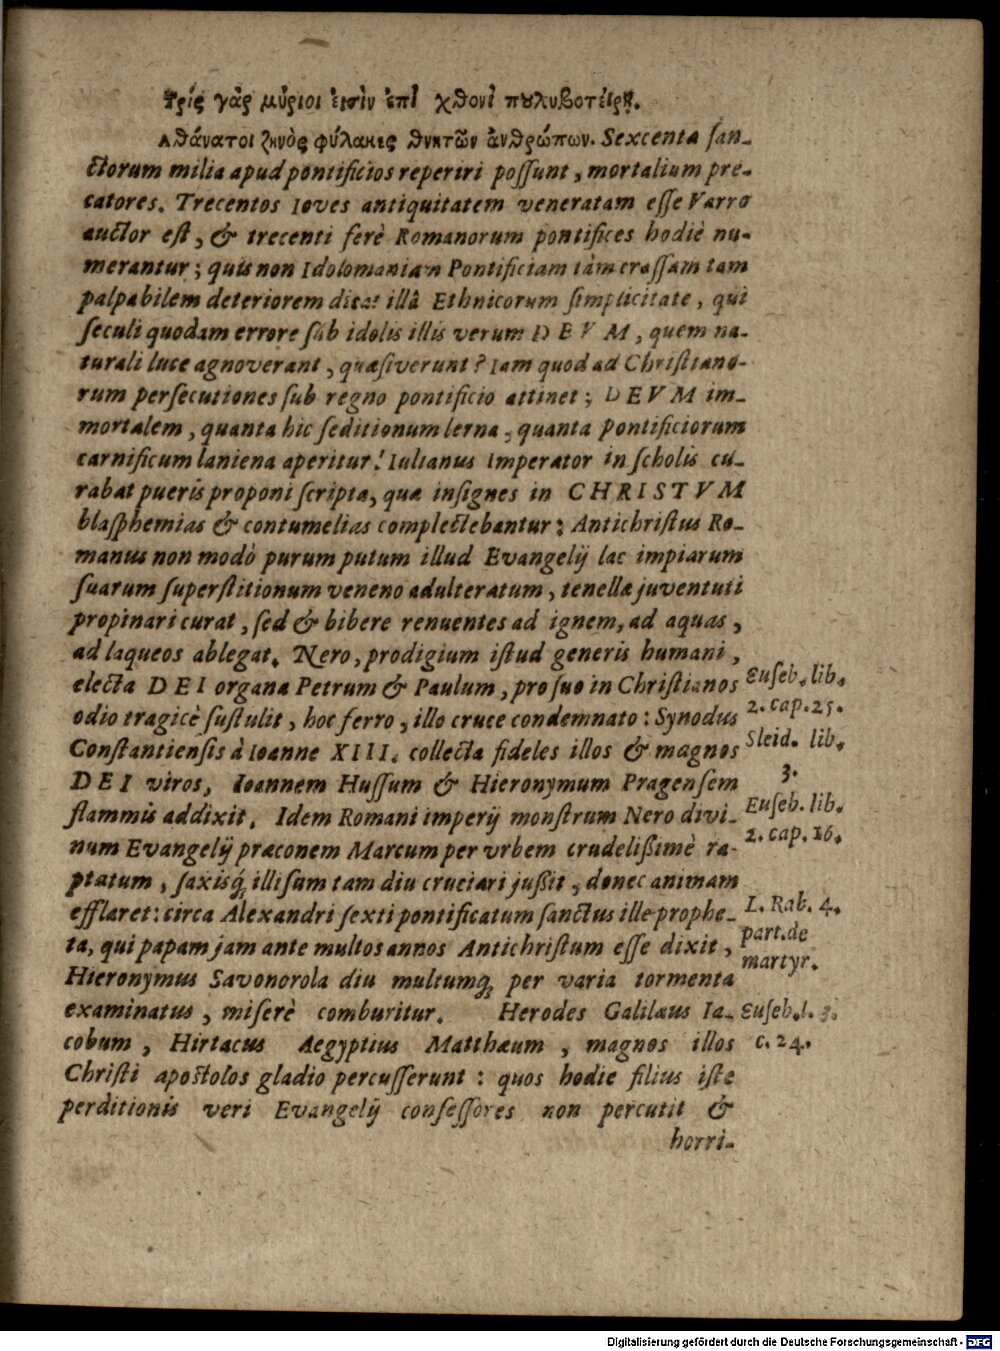 Τρίς γὰρ μύριοι ἐισὶν ἐπὶ χθονὶ πȣλυβοτείρῃ.
Αθάνατοι ζηνὸς φύλακες θνητῶν ἀνθρώπων. Sexcenta ſan-
ctorum milia apud pontificios reperiri poſſunt, mortalium pre-
catores. Trecentos Ioves antiquitatem veneratam eſſe Varro
auctor eſt, & trecenti ferè Romanorum pontifices hodiè nu-
merantur; quis non Idolomaniam Pontificiam tàm craſſam tam
palpabilem deteriorem dicat illâ Ethnicorum ſimplicitate, qui
ſeculi quodam errore ſub idolis illis verum DEVM, quem na-
turali luce agnoverant, quæſiverunt? Iam quod ad Chriſtiano-
rum perſecutiones ſub regno pontificio attinet; DEVM im-
mortalem, quanta hic ſeditionum lerna, quanta pontificiorum
carnificum laniena aperitur! Iulianus Imperator in ſcholis cu-
rabat pueris proponi ſcripta, quæ inſignes in CHRISTVM
blaſphemias & contumelias complectebantur: Antichriſtus Ro-
manus non modò purum putum illud Evangelij lac impiarum
ſuarum ſuperſtitionum veneno adulteratum, tenellæ juventuti
propinari curat, ſed & bibere renuentes ad ignem, ad aquas,
ad laqueos ablegat. Nero, prodigium iſtud generis humani,
electa DEI organa Petrum & Paulum, pro ſuo in Chriſtianos
odio tragicè ſuſtulit, hoc ferro, illo cruce condemnato: Synodus
Conſtantienſis à Ioanne XIII. collecta fideles illos & magnos
DEI viros, Ioannem Huſſum & Hieronymum Pragenſem
flammis addixit. Idem Romani imperij monſtrum Nero divi-
num Evangelij præconem Marcum per vrbem crudelißimè ra-
ptatum, ſaxisq́; illiſum tam diu cruciari jußit, donec animam
efflaret: circa Alexandri ſexti pontificatum ſanctus ille prophe-
ta, qui papam jam ante multos annos Antichriſtum eſſe dixit,
Hieronymus Savonorola diu multumq́; per varia tormenta
examinatus, miſerè comburitur. Herodes Galilæus Ia-
cobum, Hirtacus Aegyptius Matthæum, magnos illos
Chriſti apoſtolos gladio percuſſerunt: quos hodie filius iſte
perditionis veri Evangelij confeſſores non percutit &
horri-
Euſeb. lib.
2. cap. 25.
Sleid. lib.
3.
Euſeb. lib.
2. cap. 16.
L. Rab. 4.
part. de
martyr.
Euſeb. l. 3.
c. 24.
Digitalisierung gefördert durch die Deutsche Forschungsgemeinschaft - DFG